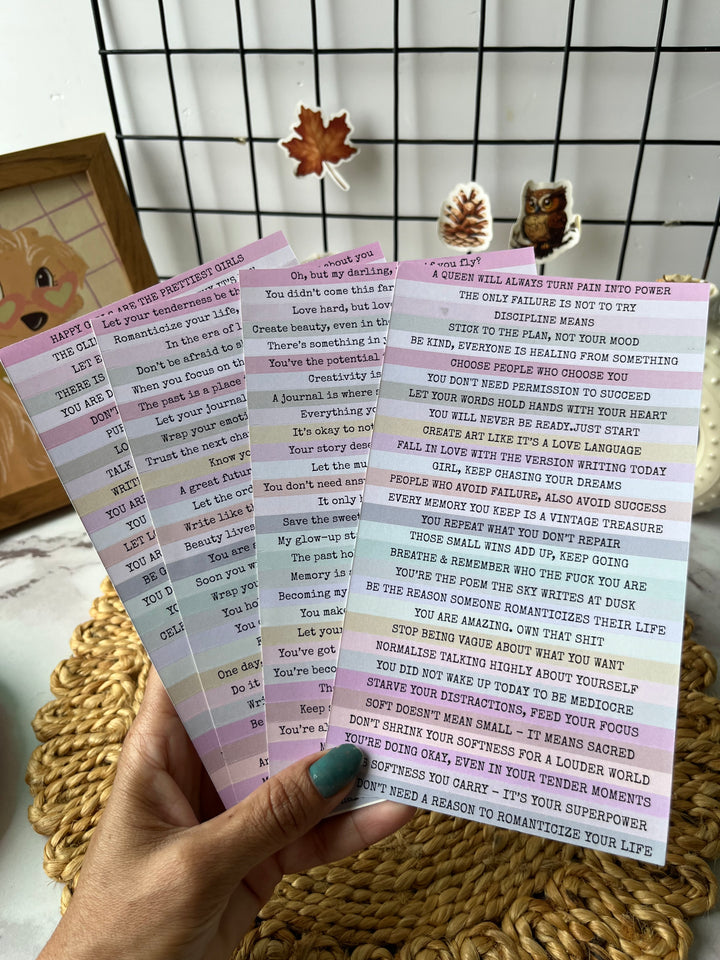 HAPPY
ARE THE PRETTIEST GIRLS
THE CLI
IT'S
LET
THERE IS
YOU ARE D
DON'T
LO
TALK
WRIT
YOU AR
YOU
LET
YOU ARE
BE G
YOU D
YO
CELE
Let your tenderness be th
Romanticize your life,
In the era of
Don't be afraid to s
When you focus on th
The past is a place
Let your journal
Wrap your emoti
Trust the next cha
Know yo
A great futur
Let the ord
Write like th
Beauty lives
You are s
Soon you w
Wrap you
You ho
You
One day,
Do it
Wri
Be
And
about you
Oh, but my darling,
if you fly?
You didn't come this far
Love hard, but lov
Create beauty, even in th
There's something in y
You've the potential
Creativity is
A journal is where
Everything yo
It's okay to not
Your story dese
Let the mu
You don't need answ
It only
Save the sweet
My glow-up st
The past ho
Memory is
Becoming my
You make
Let your
You've got
You're beco
Th
Keep s
You're al
A QUEEN WILL ALWAYS TURN PAIN INTO POWER
THE ONLY FAILURE IS NOT TO TRY
DISCIPLINE MEANS
STICK TO THE PLAN, NOT YOUR MOOD
BE KIND, EVERYONE IS HEALING FROM SOMETHING
CHOOSE PEOPLE WHO CHOOSE YOU
YOU DON'T NEED PERMISSION TO SUCCEED
LET YOUR WORDS HOLD HANDS WITH YOUR HEART
YOU WILL NEVER BE READY.JUST START
CREATE ART LIKE IT'S A LOVE LANGUAGE
FALL IN LOVE WITH THE VERSION WRITING TODAY
GIRL, KEEP CHASING YOUR DREAMS
PEOPLE WHO AVOID FAILURE, ALSO AVOID SUCCESS
EVERY MEMORY YOU KEEP IS A VINTAGE TREASURE
YOU REPEAT WHAT YOU DON'T REPAIR
THOSE SMALL WINS ADD UP, KEEP GOING
BREATHE & REMEMBER WHO THE FUCK YOU ARE
YOU'RE THE POEM THE SKY WRITES AT DUSK
BE THE REASON SOMEONE ROMANTICIZES THEIR LIFE
YOU ARE AMAZING. OWN THAT SHIT
STOP BEING VAGUE ABOUT WHAT YOU WANT
NORMALISE TALKING HIGHLY ABOUT YOURSELF
YOU DID NOT WAKE UP TODAY TO BE MEDIOCRE
STARVE YOUR DISTRACTIONS, FEED YOUR FOCUS
SOFT DOESN'T MEAN SMALL – IT MEANS SACRED
DON'T SHRINK YOUR SOFTNESS FOR A LOUDER WORLD
YOU'RE DOING OKAY, EVEN IN YOUR TENDER MOMENTS
SOFTNESS YOU CARRY – IT'S YOUR SUPERPOWER
DON'T NEED A REASON TO ROMANTICIZE YOUR LIFE